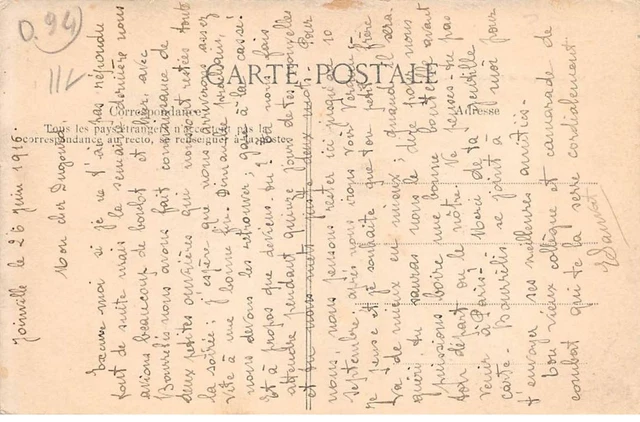 0.94
CARTE-POSTALE
Correspondance
Adresse
Tous les pays étrangers n'acceptent pas la
correspondance au recto, se renseigner à la poste
Joinville le 26 juin 1916.
Mon cher Dugourd
Excuse moi si je ne t'ai pas répondu
tout de suite mais la semaine dernière nous
avions beaucoup de boulot et hier, avec
Bourrelis nous avons fait connaissance de
deux petites ouvrières qui nous ont restées toute
la soirée ; j'espère que nous arriverons assez
vite à une bonne fin. Dimanche prochain,
nous devons les retrouver ; gare à la casse !
Et à propos que deviens tu ? Vas-tu nous faire
attendre pendant quinze jours de tes nouvelles
et tu nous mets juste deux mots. Pour
nous, nous pensons rester ici jusqu'au 10
septembre, après nous irons voir
Je pense et je souhaite que ton petit frère
va de mieux en mieux ; quand il sera
guéri tu sauras nous le dire pour que nous
puissions boire une bonne bouteille avant
ton départ ou le notre. Ne penses-tu pas
venir à Paris ? Merci de ta gentille
carte. Bourrelis se joint à moi pour
t'envoyer ses meilleures amitiés.
Ton vieux collègue et camarade de
combat qui te la serre cordialement